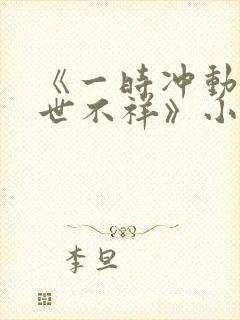 《一时冲动
世不祥》小
李旦